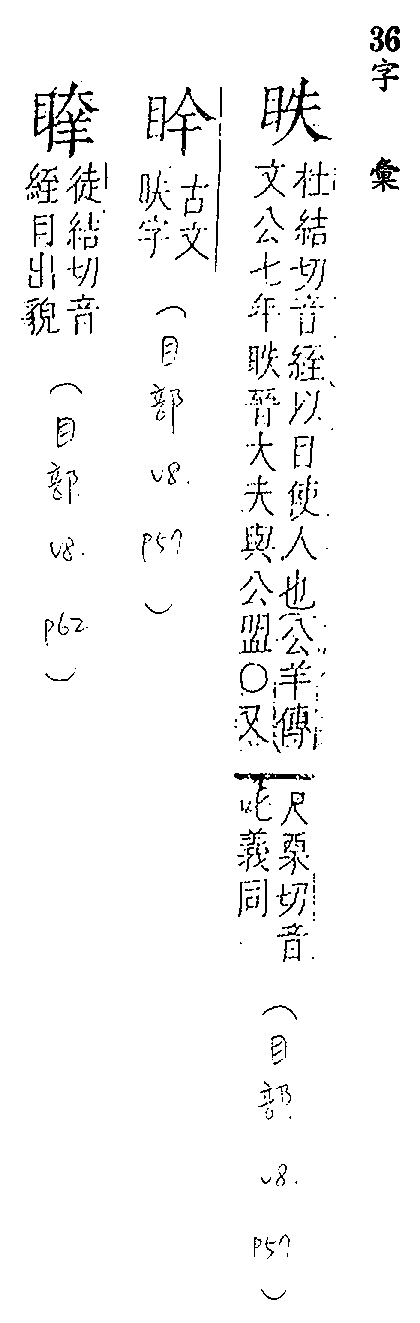 36字 彙
眣
杜結切音絰以目使人也公羊傳
文公七年眣晉大夫與公盟○又
尺栗切音
叱義同
（目部 v8. p57）
古文
眣字
（目部 v8. p57）
徒結切音
絰目出貌
（目部 v8. p62）